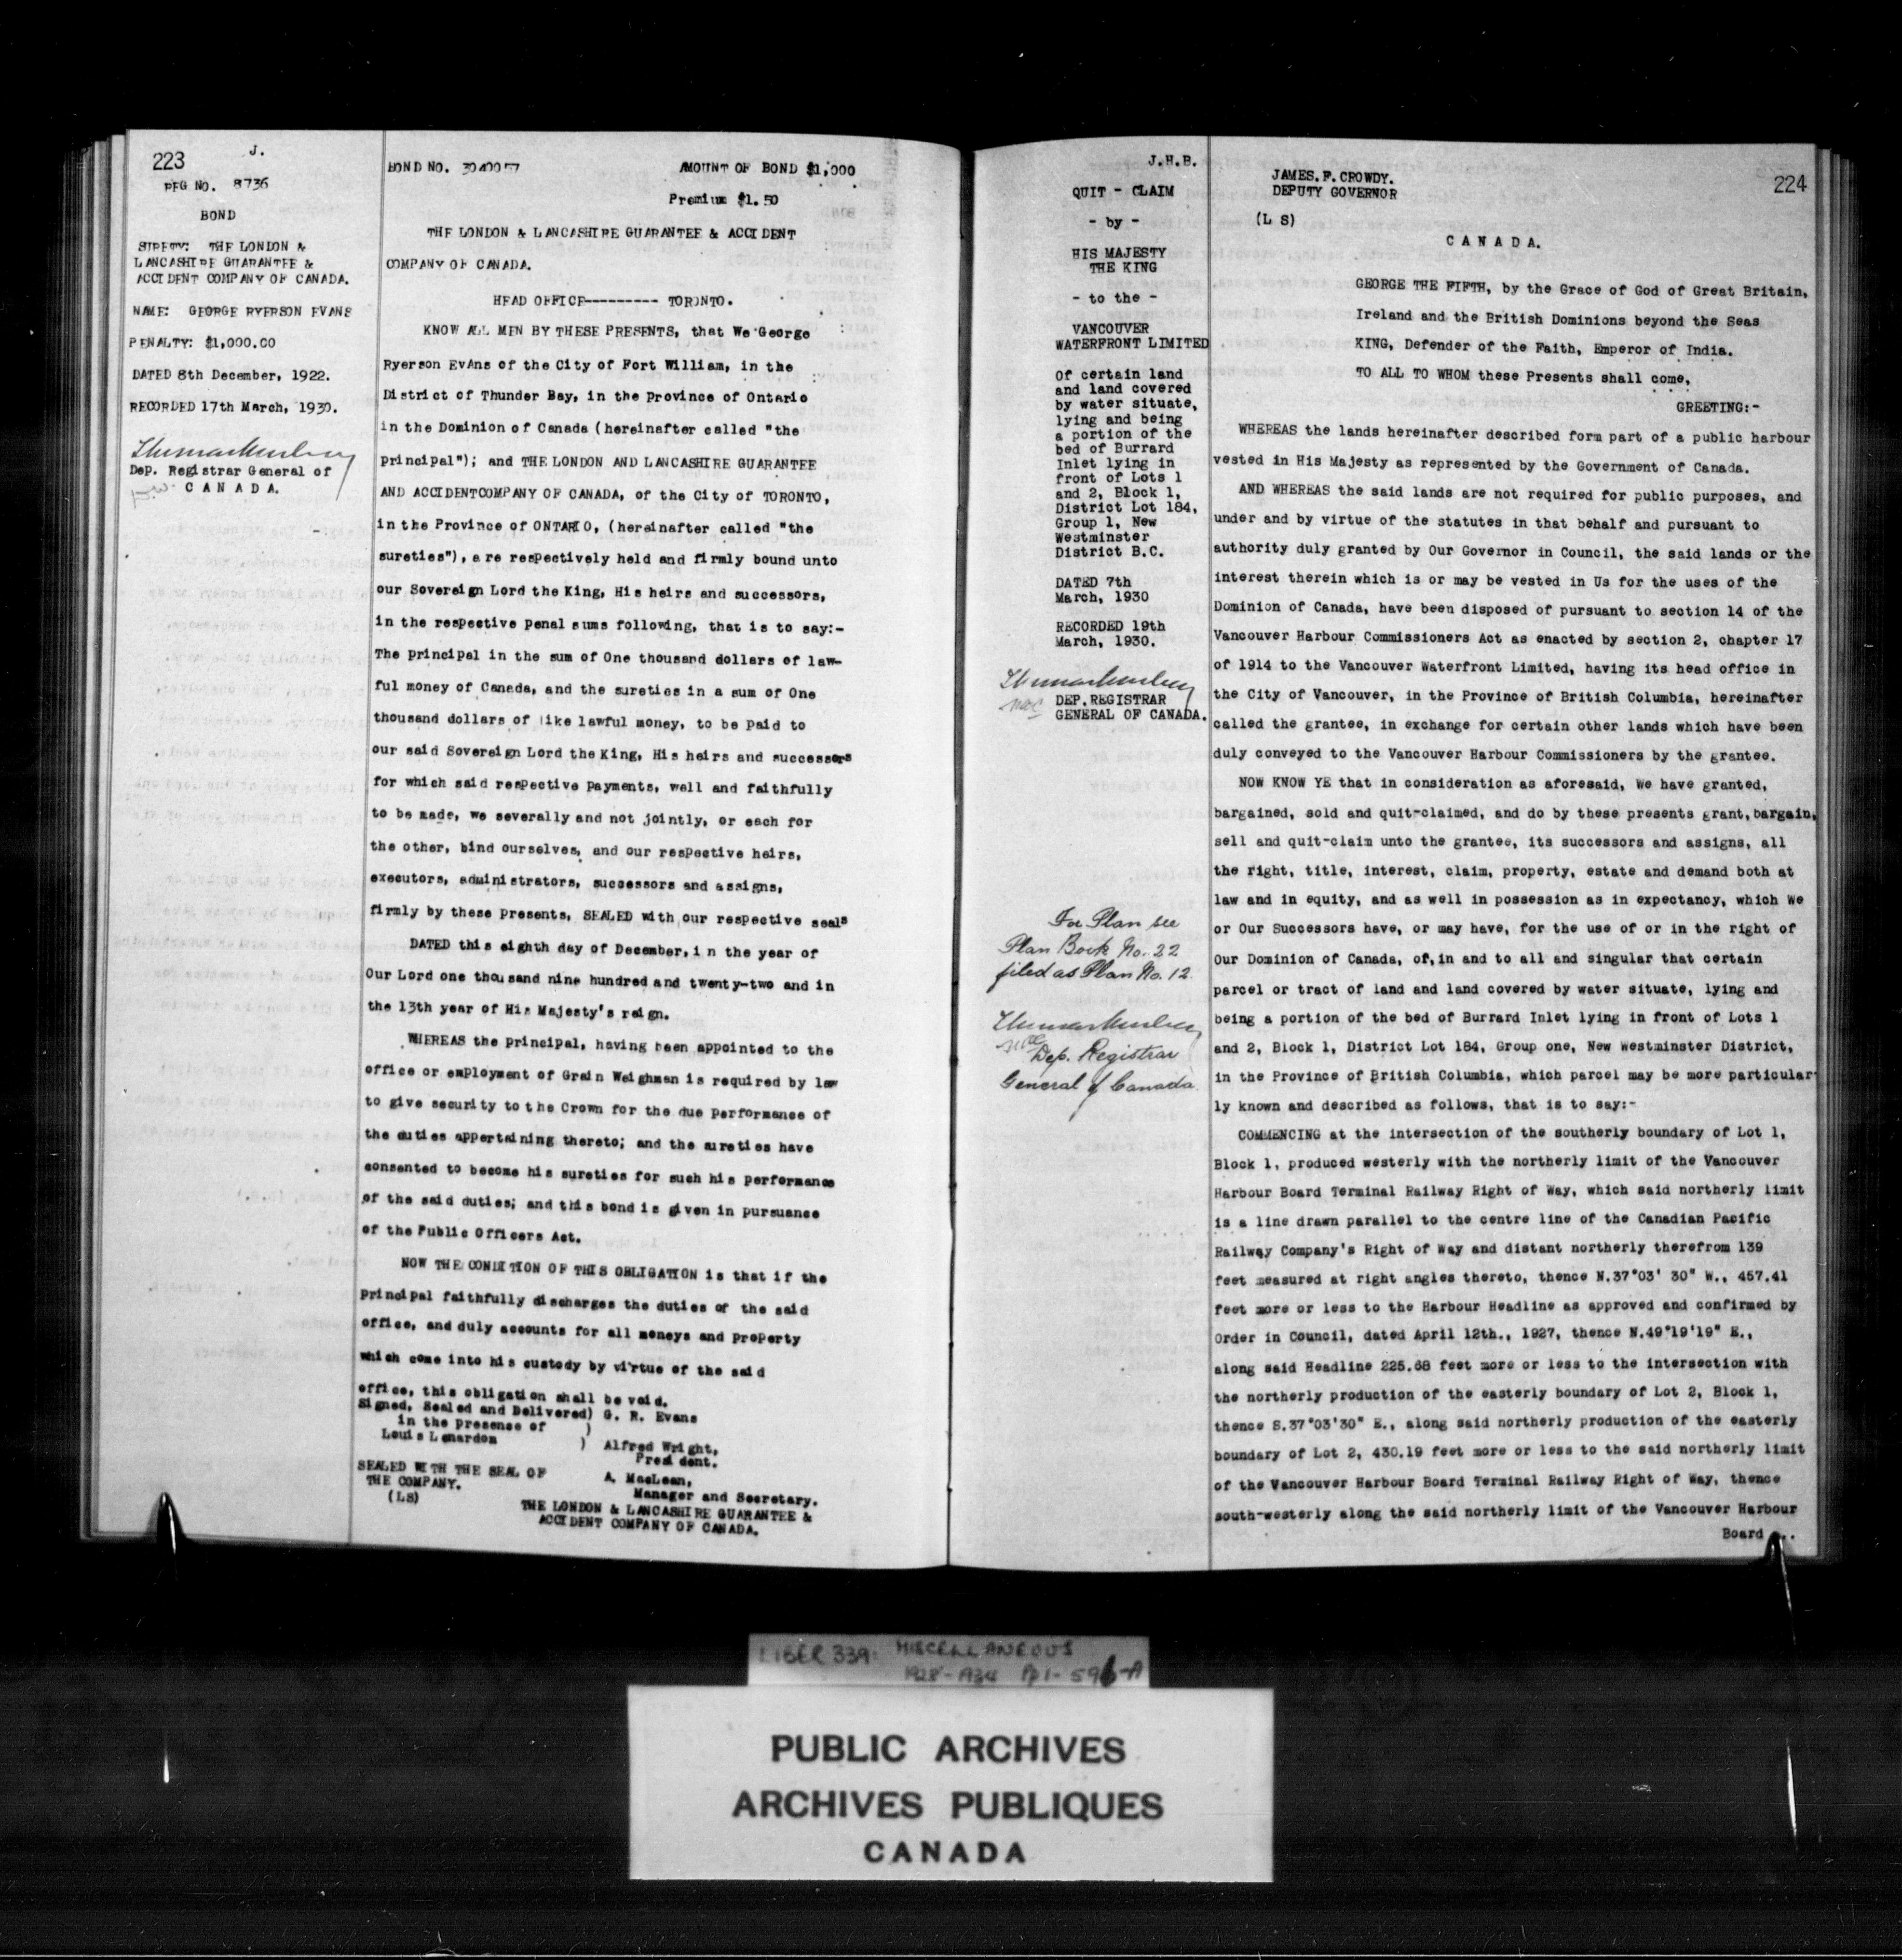 223
J.
REG NO. 8736
BOND
SURETY: THE LONDON &
LANCASHIRE GUARANTEE &
ACCIDENT COMPANY OF CANADA.
NAME: GEORGE RYERSON EVANS
PENALTY: $1,000.00
DATED 8th December, 1922.
RECORDED 17th March, 1930.
Dep. Registrar General of
CANADA.
BOND NO. AMOUNT OF BOND $1,000
Premium $1.50
THE LONDON & LANCASHIRE GUARANTEE & ACCIDENT
COMPANY OF CANADA.
HEAD OFFICE--------- TORONTO.
KNOW ALL MEN BY THESE PRESENTS, that We George
Ryerson EvAns of the City of Fort William, in the
District of Thunder Bay, in the Province of Ontario
in the Dominion of Canada (hereinafter called "the
principal"); and THE LONDON AND LANCASHIRE GUARANTEE
AND ACCIDENTCOMPANY OF CANADA, of the City of TORONTO,
in the Province of ONTARIO, (hereinafter called "the
sureties"), are respectively held and firmly bound unto
our Sovereign Lord the King, His heirs and successors,
in the respective penal sums following, that is to say:-
The principal in the sum of One thousand dollars of law-
ful money of Canada, and the sureties in a sum of One
thousand dollars of like lawful money, to be paid to
our said Sovereign Lord the King, His heirs and successors
for which said respective payments, well and faithfully
to be made, we severally and not jointly, or each for
the other, bind ourselves, and our respective heirs,
executors, administrators, successors and assigns,
firmly by these presents, SEALED with our respective seals
DATED this eighth day of December, in the year of
Our Lord one thousand nine hundred and twenty-two and in
the 13th year of His Majesty's reign.
WHEREAS the principal, having been appointed to the
office or employment of Grain Weighman is required by law
to give security to the Crown for the due performance of
the duties appertaining thereto; and the sureties have
consented to become his sureties for such his performance
of the said duties; and this bond is given in pursuance
of the Public Officers Act.
NOW THE CONDITION OF THIS OBLIGATION is that if the
principal faithfully discharges the duties of the said
office, and duly accounts for all moneys and property
which come into his custody by virtue of the said
office, this obligation shall be void.
Signed, Sealed and Delivered) G. R. Evans
in the presence of )
Louis Lenardon ) Alfred Wright,
President.
SEALED WITH THE SEAL OF A. MacLean,
THE COMPANY. Manager and Secretary.
(LS) THE LONDON & LANCASHIRE GUARANTEE &
ACCIDENT COMPANY OF CANADA.
J.H.B.
QUIT - CLAIM
- by -
HIS MAJESTY
THE KING
- to the -
VANCOUVER
WATERFRONT LIMITED
Of certain land
and land covered
by water situate,
lying and being
a portion of the
bed of Burrard
Inlet lying in
front of Lots 1
and 2, Block 1,
District Lot 184,
Group 1, New
Westminster
District B.C.
DATED 7th
March, 1930
RECORDED 19th
March, 1930.
DEP. REGISTRAR
GENERAL OF CANADA.
For Plan see
Plan Book No. 22
filed as Plan No. 12.
Dep. Registrar
General of Canada
224
JAMES. F. CROWDY.
DEPUTY GOVERNOR
(L S)
CANADA.
GEORGE THE FIFTH, by the Grace of God of Great Britain,
Ireland and the British Dominions beyond the Seas
KING, Defender of the Faith, Emperor of India.
TO ALL TO WHOM these Presents shall come,
GREETING:-
WHEREAS the lands hereinafter described form part of a public harbour
vested in His Majesty as represented by the Government of Canada.
AND WHEREAS the said lands are not required for public purposes, and
under and by virtue of the statutes in that behalf and pursuant to
authority duly granted by Our Governor in Council, the said lands or the
interest therein which is or may be vested in Us for the uses of the
Dominion of Canada, have been disposed of pursuant to section 14 of the
Vancouver Harbour Commissioners Act as enacted by section 2, chapter 17
of 1914 to the Vancouver Waterfront Limited, having its head office in
the City of Vancouver, in the Province of British Columbia, hereinafter
called the grantee, in exchange for certain other lands which have been
duly conveyed to the Vancouver Harbour Commissioners by the grantee.
NOW KNOW YE that in consideration as aforesaid, We have granted,
bargained, sold and quit-claimed, and do by these presents grant, bargain,
sell and quit-claim unto the grantee, its successors and assigns, all
the right, title, interest, claim, property, estate and demand both at
law and in equity, and as well in possession as in expectancy, which We
or Our Successors have, or may have, for the use of or in the right of
Our Dominion of Canada, of, in and to all and singular that certain
parcel or tract of land and land covered by water situate, lying and
being a portion of the bed of Burrard Inlet lying in front of Lots 1
and 2, Block 1, District Lot 184, Group one, New Westminster District,
in the Province of British Columbia, which parcel may be more particular-
ly known and described as follows, that is to say:-
COMMENCING at the intersection of the southerly boundary of Lot 1,
Block 1, produced westerly with the northerly limit of the Vancouver
Harbour Board Terminal Railway Right of Way, which said northerly limit
is a line drawn parallel to the centre line of the Canadian Pacific
Railway Company's Right of Way and distant northerly therefrom 139
feet measured at right angles thereto, thence N.37°03' 30" W., 457.41
feet more or less to the Harbour Headline as approved and confirmed by
Order in Council, dated April 12th., 1927, thence N.49°19'19" E.,
along said Headline 225.68 feet more or less to the intersection with
the northerly production of the easterly boundary of Lot 2, Block 1,
thence S.37°03'30" E., along said northerly production of the easterly
boundary of Lot 2, 430.19 feet more or less to the said northerly limit
of the Vancouver Harbour Board Terminal Railway Right of Way, thence
south-westerly along the said northerly limit of the Vancouver Harbour
Board ...
LIBER 339: MISCELLANEOUS
1928-1934 Pp 1-596-A
PUBLIC ARCHIVES
ARCHIVES PUBLIQUES
CANADA